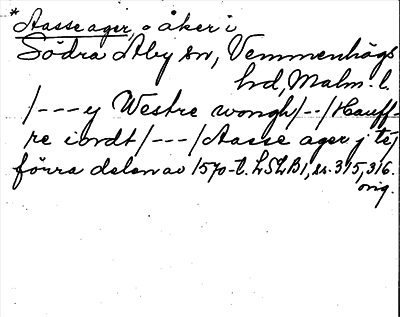 *Aasse ager, åker i
Södra Åby sn, Vemmenhögs
hd, Malm. l.
/---y Westre wongh/--/Hauff-
re iordt/---/Aasse ager j tej
förra delen av 1570-t. LSLB1, s. 315, 316.
orig.